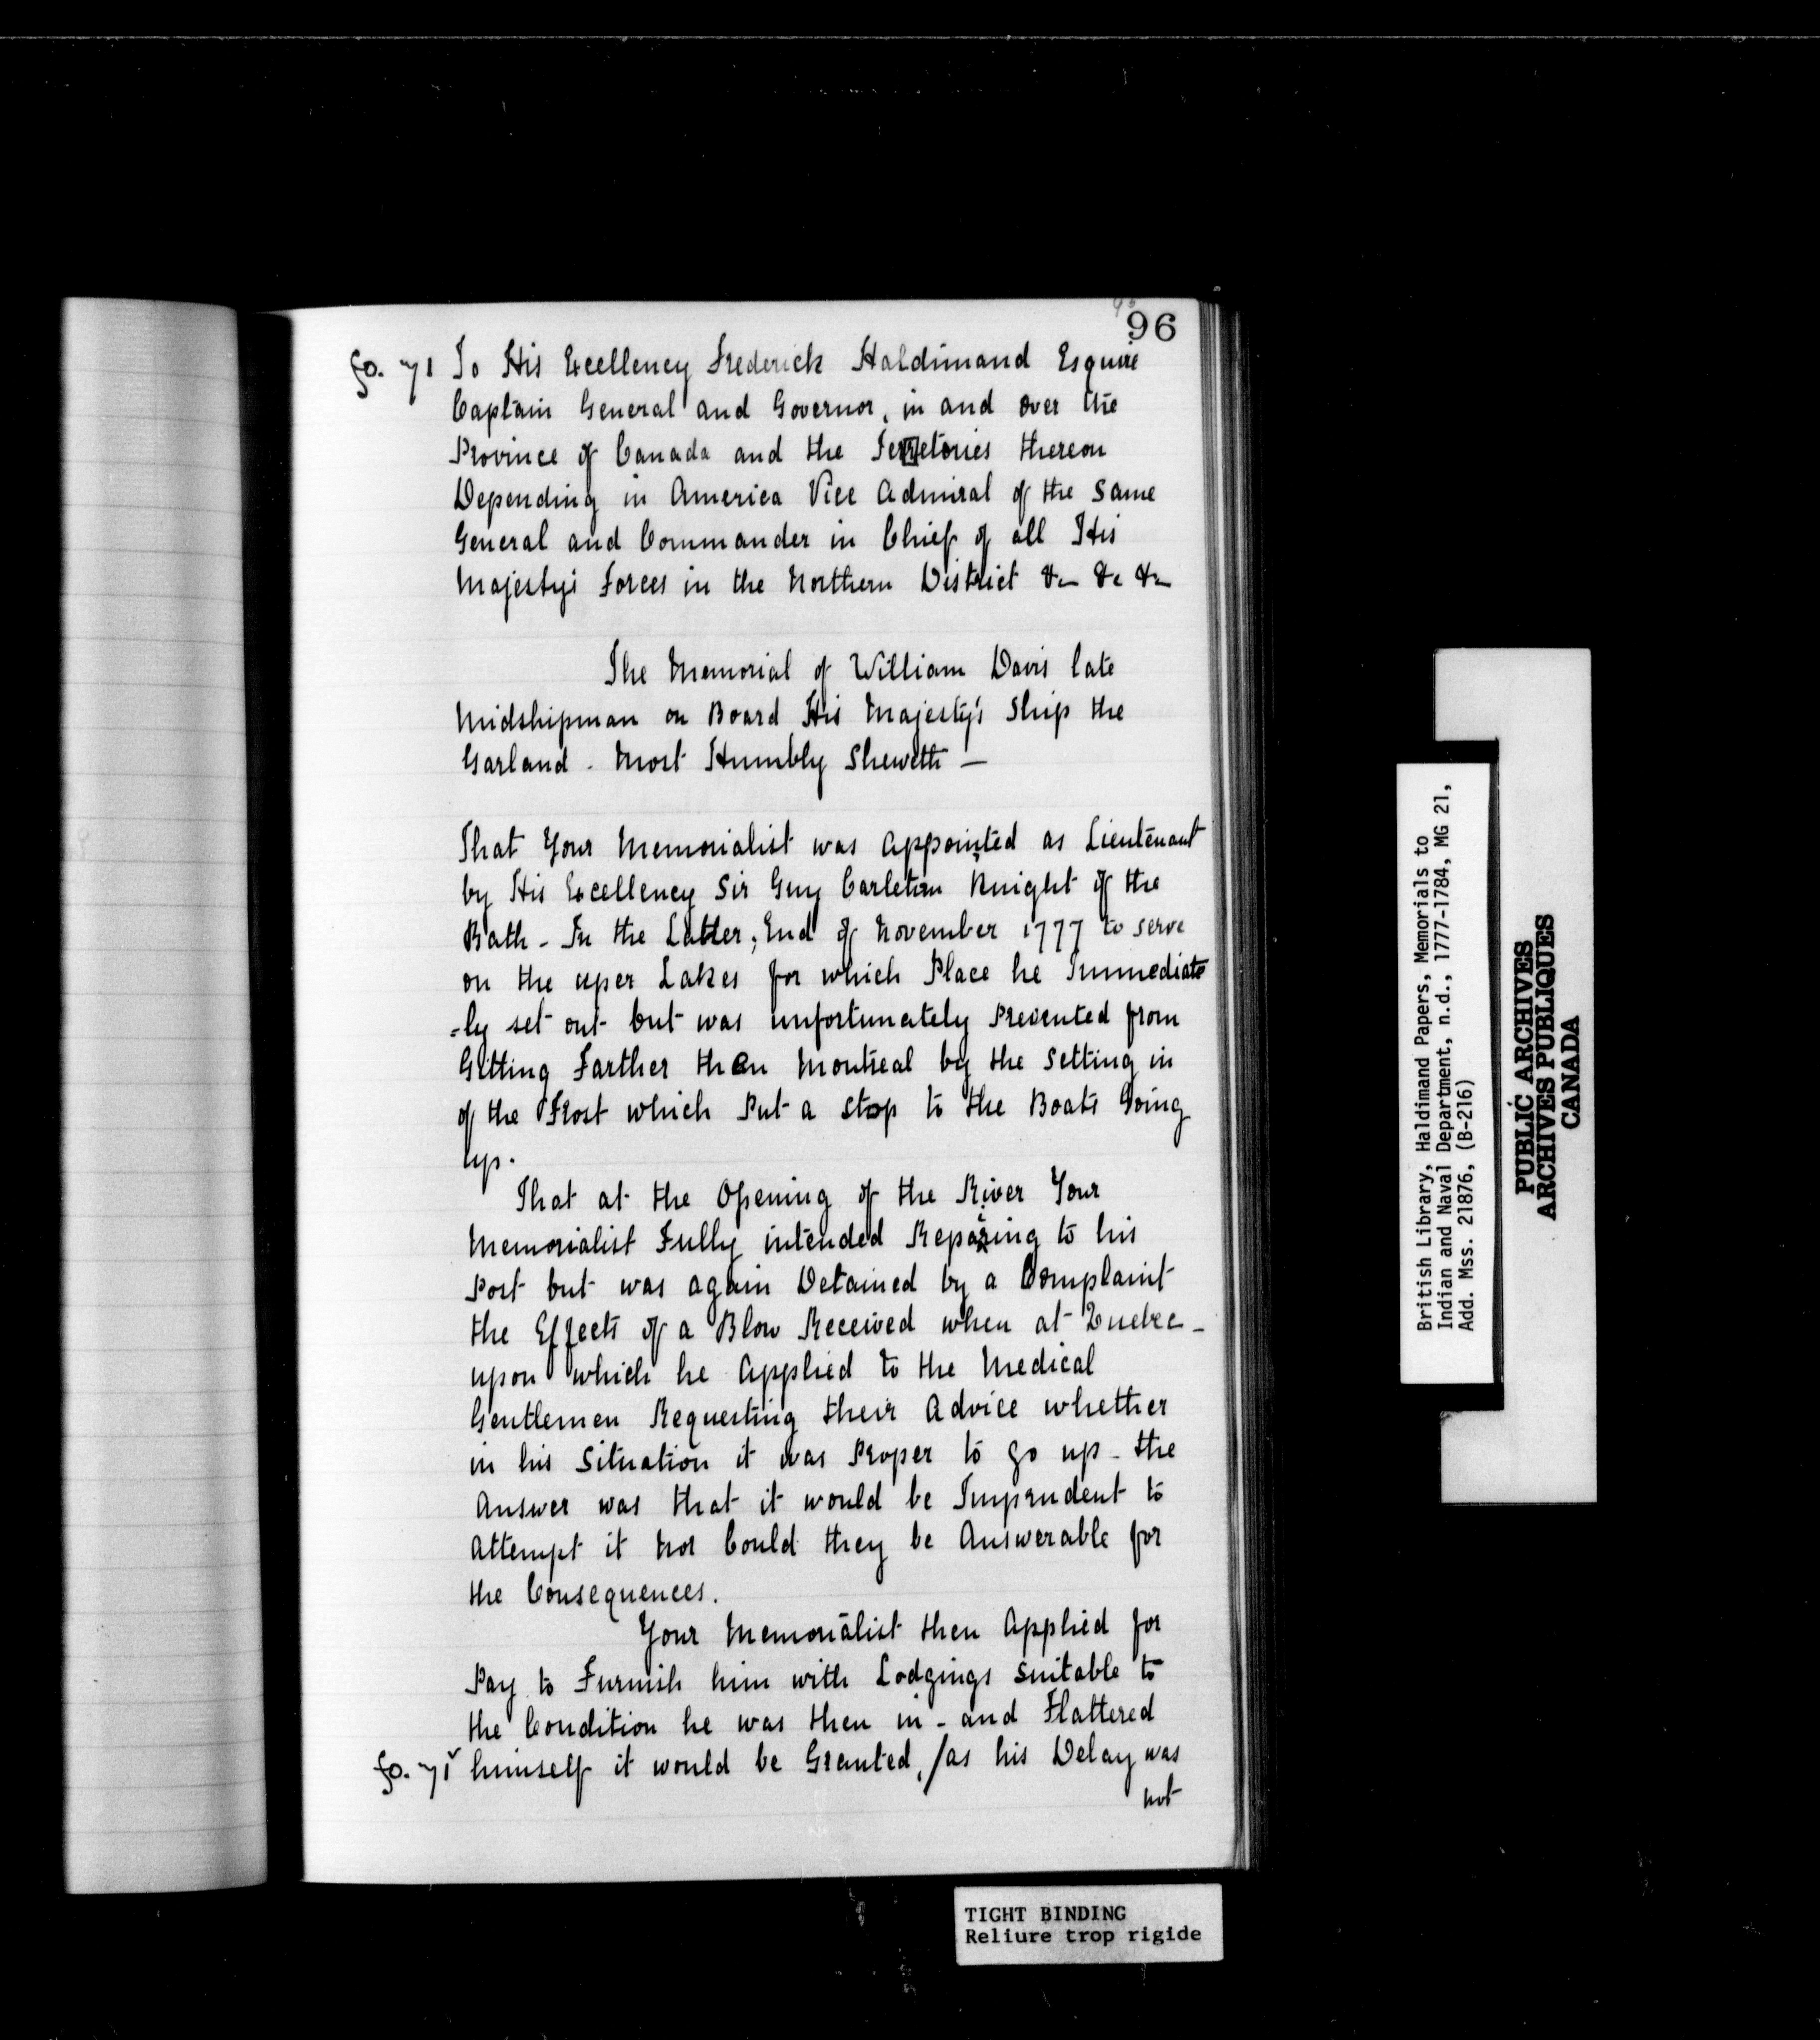 96
fo. 71 To His Excellency Frederick Haldimand Esquire
Captain General and Governor, in and over the
Province of Canada and the Terretories thereon
Depending in America Vice Admiral of the Same
General and Commander in Chief of all His
Majesty's Forces in the Northern District &c &c &c
The Memorial of William Davis late
Midshipman on Board His Majesty's Ship the
Garland - Most Humbly Sheweth —
That Your Memorialist was appointed as Lieutenant
by His Excellency Sir Guy Carleton Knight of the
Bath - In the Latter, End of November 1777 to serve
on the uper Lakes for which Place he Immediate
=ly set out but was unfortunately Prevented from
Gitting Farther then Montreal by the Setting in
of the Frost which Put a stop to the Boats Going
up.
That at the Opening of the River Your
Memorialist Fully intended Repairing to his
Post but was again Detained by a Complaint
the Effects of a Blow Received when at Quebec -
upon which he Applied to the Medical
Gentlemen Requesting their Advice whether
in his Situation it was Proper to go up - the
Answer was that it would be Imprudent to
Attempt it nor Could they be Answerable for
the Consequences.
Your Memorialist then Applied for
Pay to Furnish him with Lodgings suitable to
the Condition he was then in - and Flattered
fo. 71v himself it would be Granted, /as his Delay was
not
British Library, Haldimand Papers, Memorials to
Indian and Naval Department, n.d., 1777-1784, MG 21,
Add. Mss. 21876, (B-216)
PUBLIC ARCHIVES
ARCHIVES PUBLIQUES
CANADA
TIGHT BINDING
Reliure trop rigide